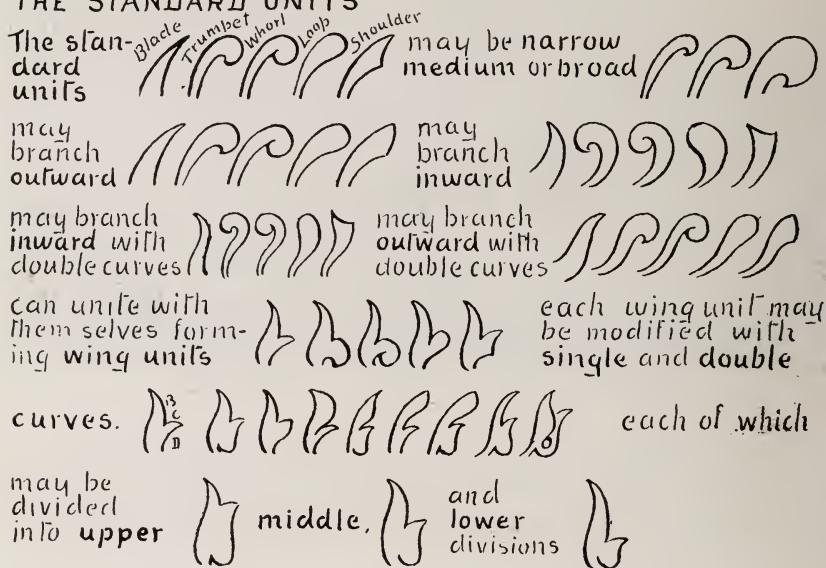 THE STANDARD UNITS
Blade Trumpet Whorl Loop Shoulder
The stan-
dard
units
may be narrow
medium or broad
may
branch
outward
may
branch
inward
may branch
inward with
double curves
may branch
outward with
double curves
can unite with
them selves form-
ing wing units
each wing unit may
be modified with
single and double
curves.
B
C
D
each of which
may be
divided
into upper
middle,
and
lower
divisions